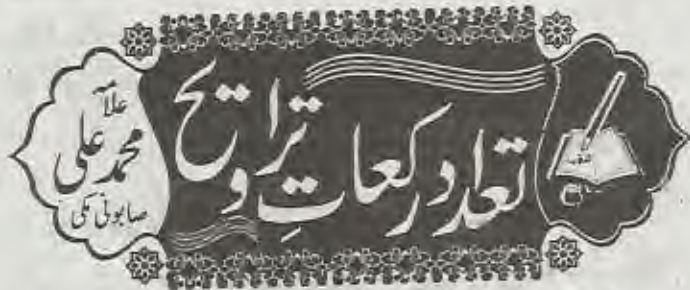 تعداد رکعاتِ تراویح
علامہ
محمد علی
صابونی مکی